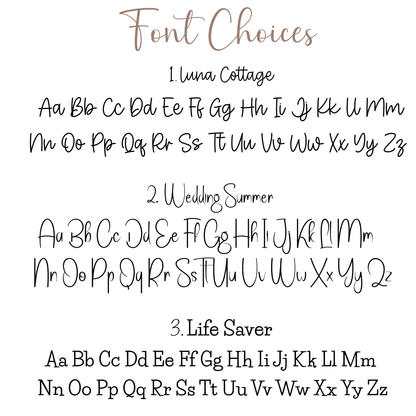 Font Choices
1. Luna Cottage
Aa Bb Cc Dd Ee Ff Gg Hh Ii Jj Kk Ll Mm
Nn Oo Pp Qq Rr Ss Tt Uu Vv Ww Xx Yy Zz
2. Wedding Summer
Aa Bb Cc Dd Ee Ff Gg Hh Ii Jj Kk Ll Mm
Nn Oo Pp Qq Rr Ss Tt Uu Vv Ww Xx Yy Zz
3. Life Saver
Aa Bb Cc Dd Ee Ff Gg Hh Ii Jj Kk Ll Mm
Nn Oo Pp Qq Rr Ss Tt Uu Vv Ww Xx Yy Zz